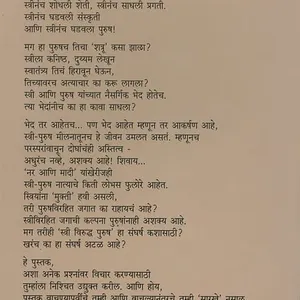 स्त्रीनंच शोधली शेती, स्त्रीनंच साधली प्रगती.
स्त्रीनंच घडवली संस्कृती
आणि स्त्रीनंच घडवला पुरुष!
मग हा पुरुषच तिचा 'शत्रू' कसा झाला?
स्त्रीला कनिष्ठ, दुय्यम लेखून
स्वातंत्र्य तिचं हिरावून घेऊन,
तिच्यावरच अत्याचार का करू लागला?
स्त्री आणि पुरुष यांच्यात नैसर्गिक भेद होतेच.
त्या भेदांनीच का हा कावा साधला?
भेद तर आहेतच... पण भेद आहेत म्हणून तर आकर्षण आहे,
स्त्री-पुरुष मीलनातूनच हे जीवन उमलत असतं. म्हणूनच
परस्परांवाचून दोघांचंही अस्तित्व -
अधुरंच नव्हे, अशक्य आहे! शिवाय...
'नर आणि मादी' यांखेरीजही
स्त्री-पुरुष नात्याचे किती लोभस फुलोरे आहेत.
स्त्रियांना 'मुक्ती' हवी असली,
तरी पुरुषविरहित जगात का राहायचं आहे?
स्त्रीविरहित जगाची कल्पना पुरुषांनाही अशक्य आहे.
मग तरीही 'स्त्री विरुद्ध पुरुष' हा संघर्ष कशासाठी?
खरंच का हा संघर्ष अटळ आहे?
हे पुस्तक,
अशा अनेक प्रश्नांवर विचार करण्यासाठी
तुम्हांला निश्चित उद्युक्त करील. आणि होय,
पुस्तक वाचण्यापूर्वीचे तुम्ही आणि वाचल्यानंतरचे तुम्ही 'सारखे' नसाल